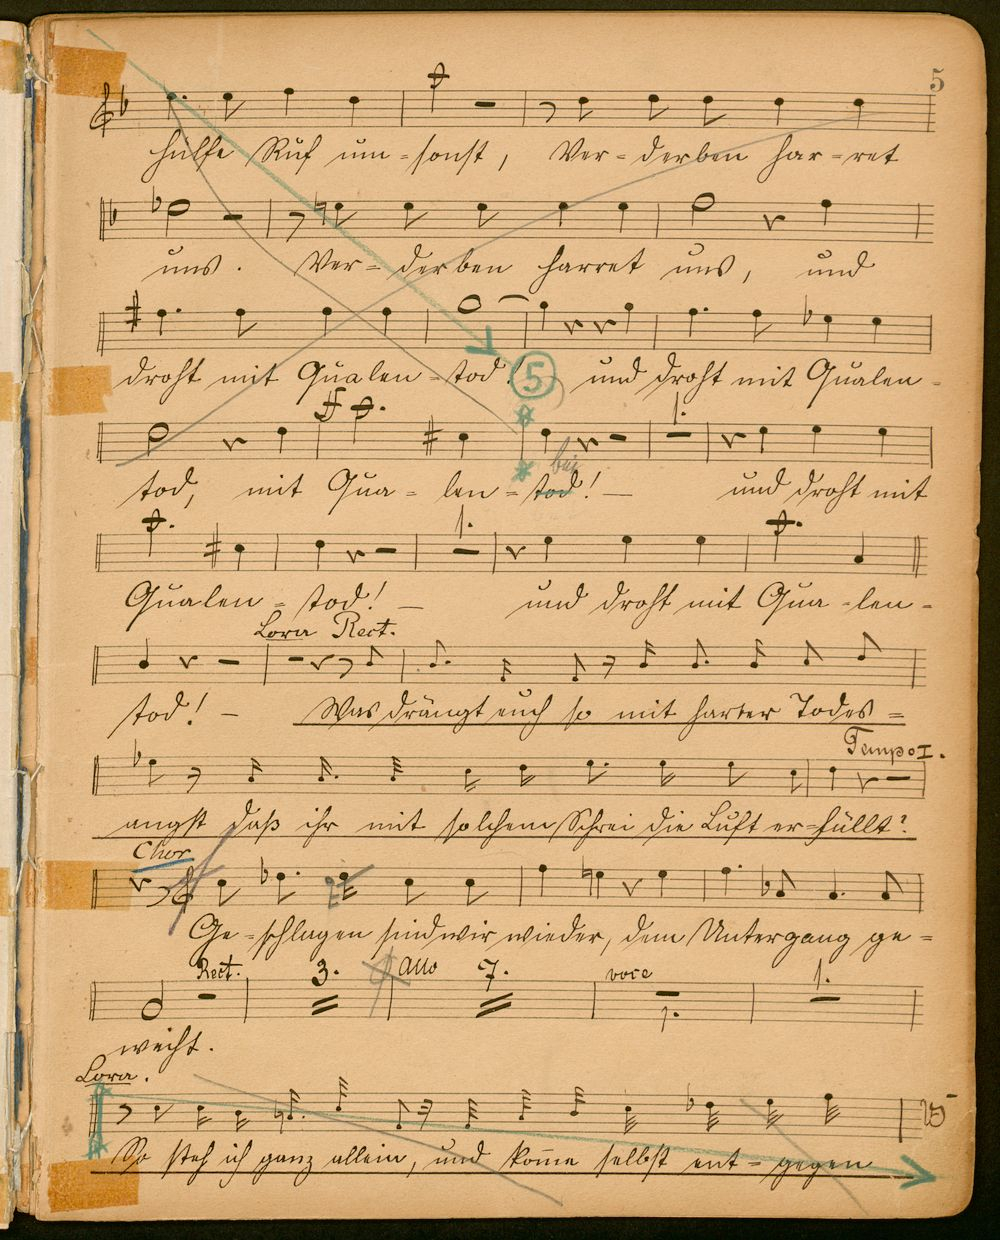 5
hülfe Ruf um-sonst, Ver-derben har-ret
uns. Ver-derben harret uns, und
droht mit Qualen-tod! 5 und droht mit Qualen-
tod, mit Qua-len-tod! bei und droht mit
1.
Qualen-tod! und droht mit Qua-len-
1.
Lora Rect.
tod! Was drängt euch so mit harter Todes=
Tempo I.
angst daß ihr mit solchem Schrei die Luft er-füllt?
Chor
Ge-schlagen sind wir wieder, dem Untergang ge=
Rect. 3. Allo 7. voce 1. 1.
weiht.
Lora.
So steh ich ganz allein, und kom̅e selbst ent-gegen